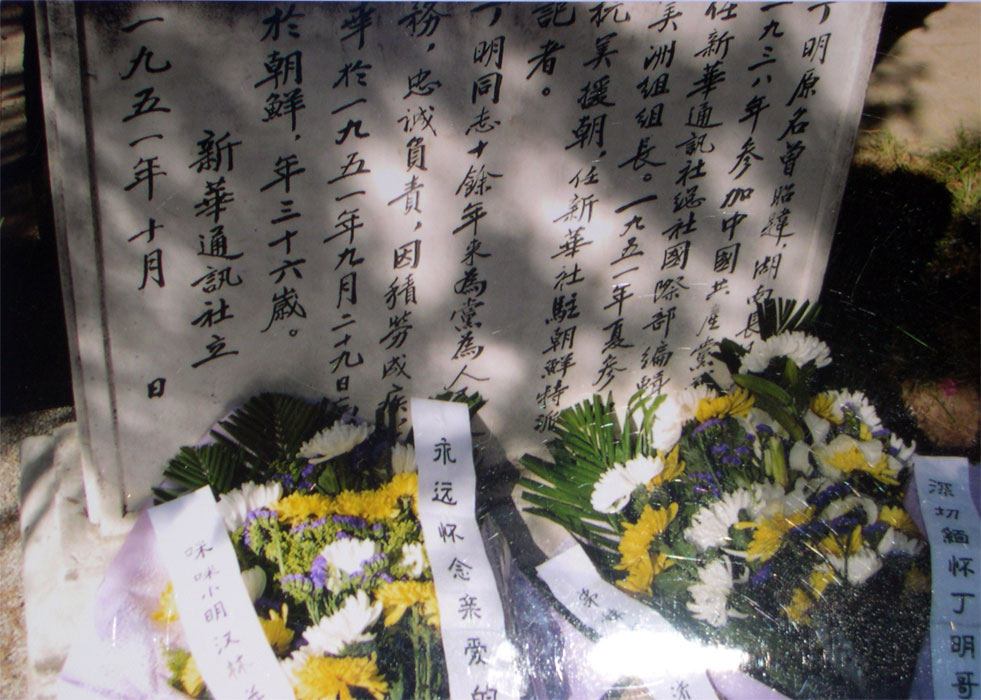 丁明原名曾昭鍏，湖南長
一九三八年參加中國共產黨
任新華通訊社總社國際部編輯
美洲組組長。一九五一年夏參
抗美援朝，任新華社駐朝鮮特派
記者。
丁明同志十餘年來為黨為人
務，忠誠負責，因積勞成疾
華於一九五一年九月二十九日
於朝鮮，年三十六歲。
新華通訊社立
一九五一年十月 日
咪咪小明汉
永远怀念亲爱的
深切緬怀丁明哥